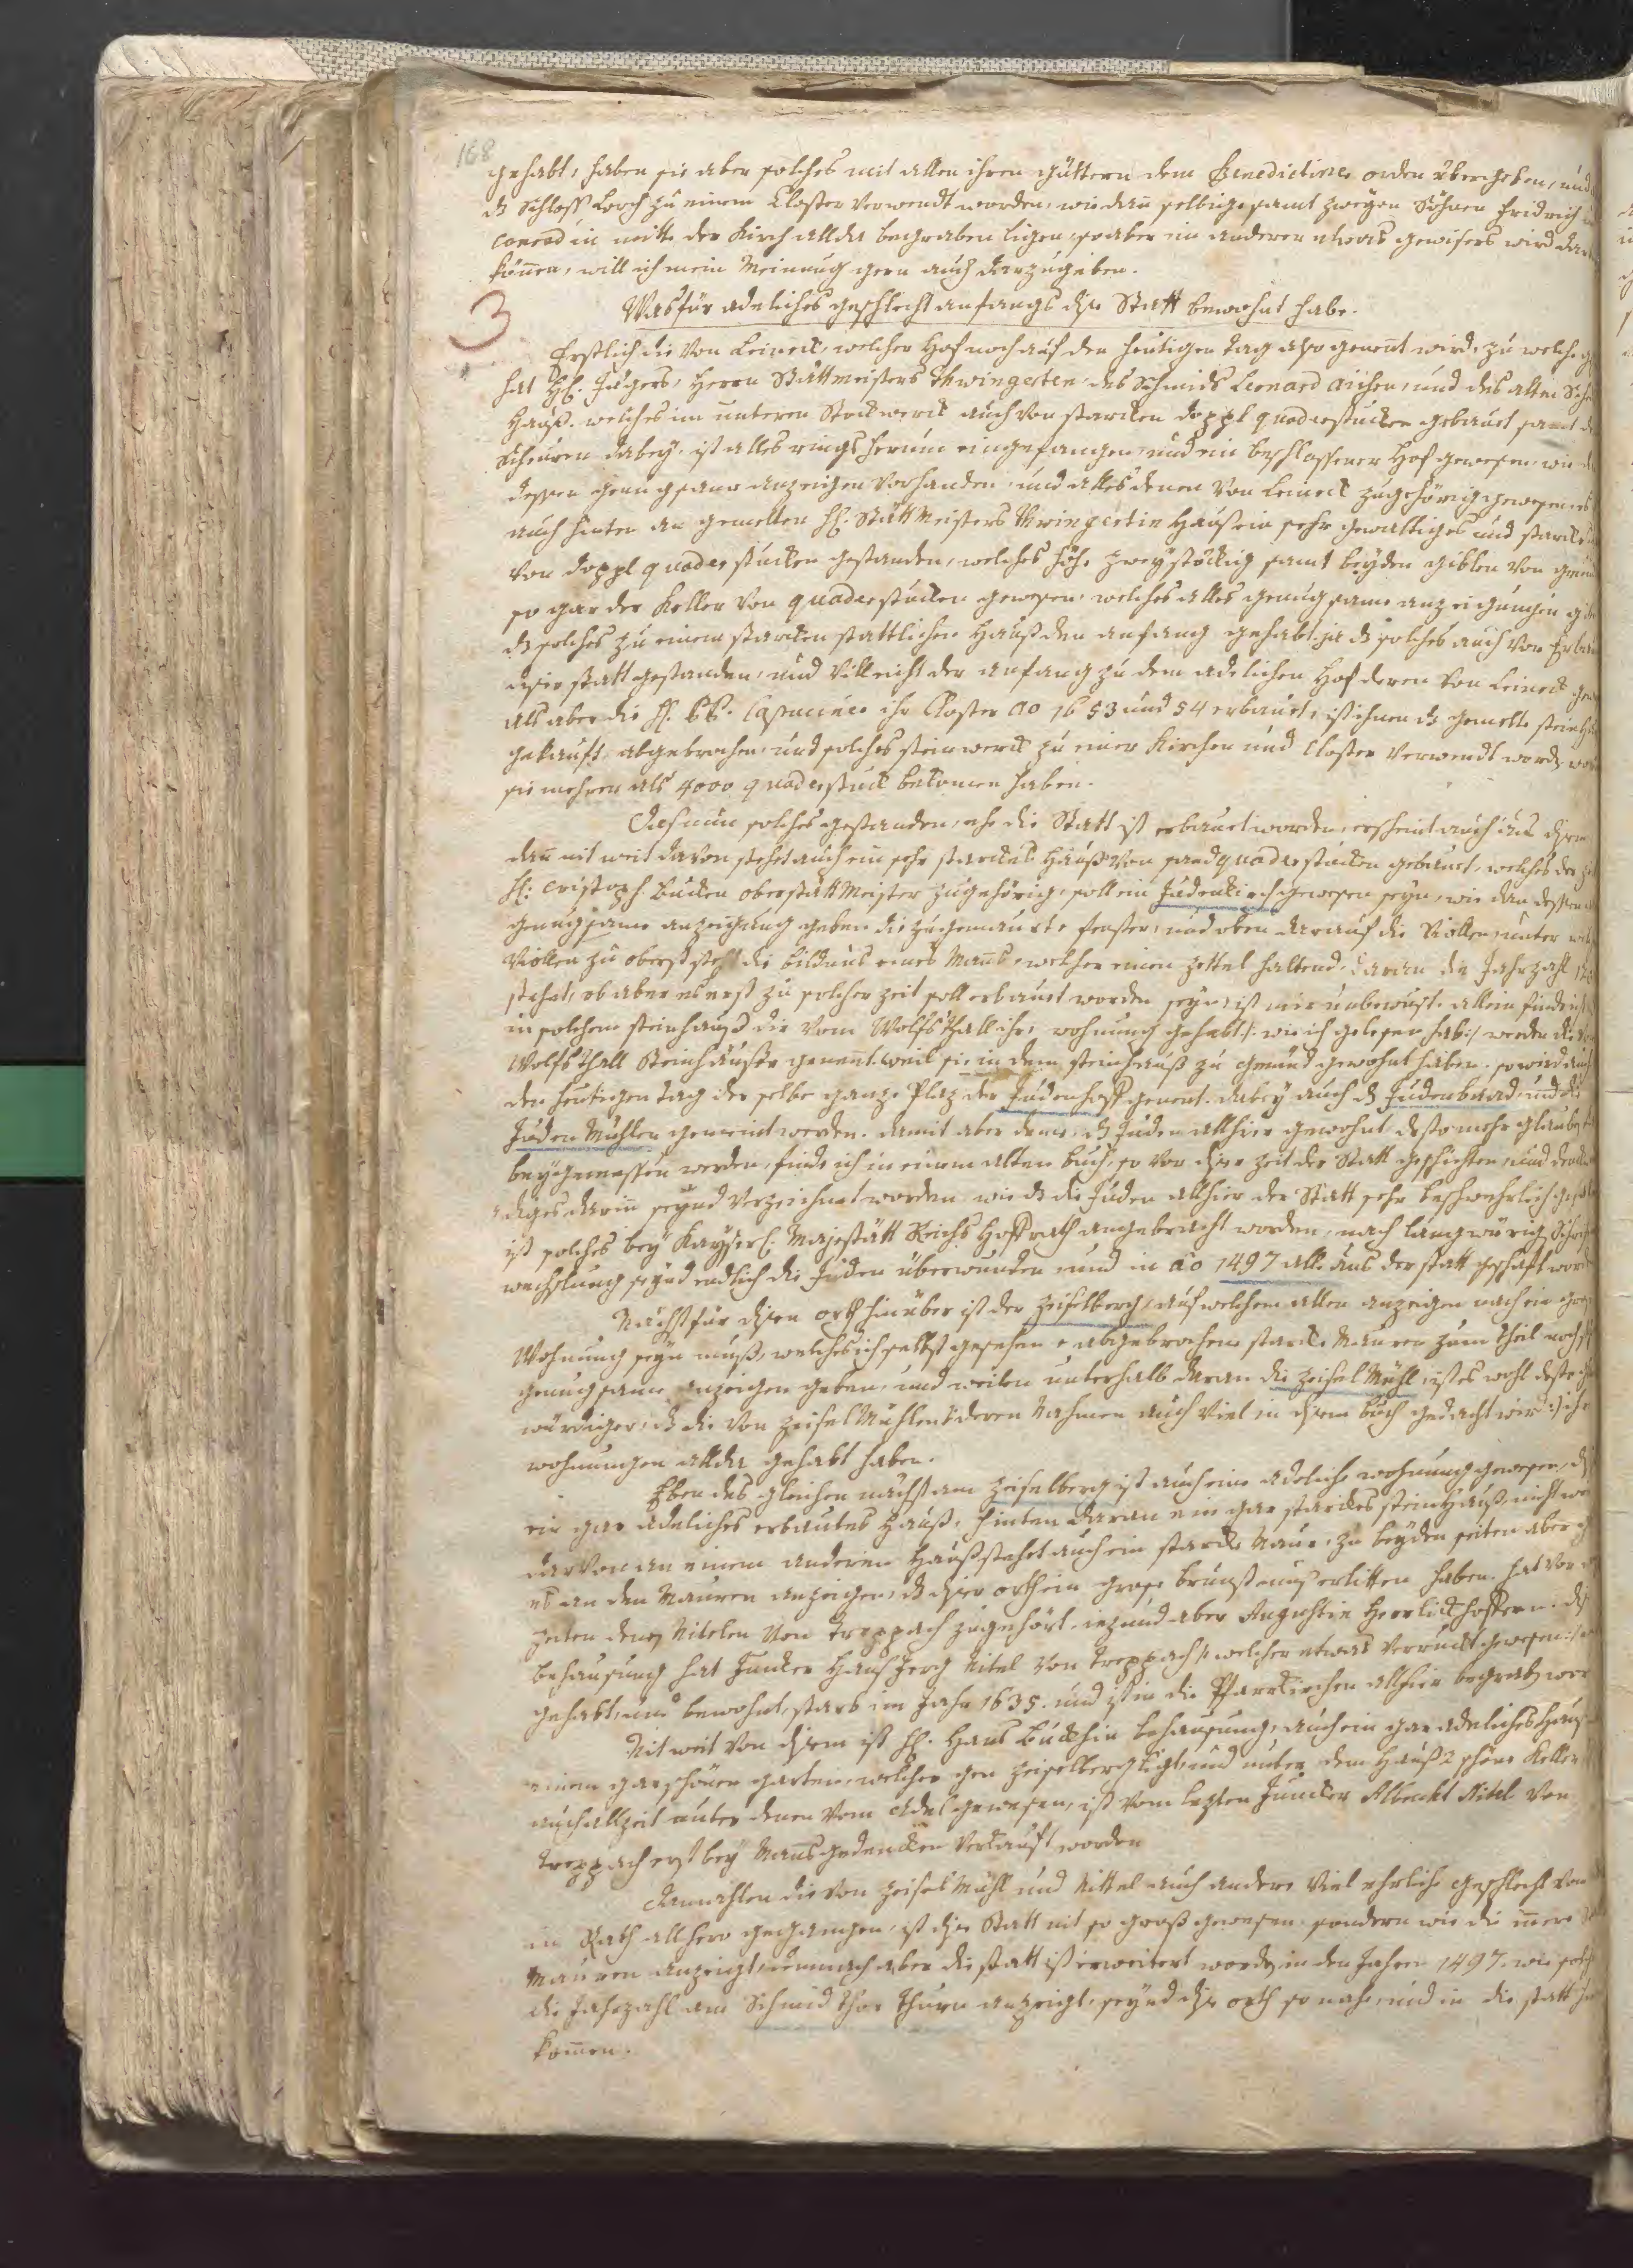 168
gehabt, haben sie aber solches mit allen ihren güttern dem Benedictiner orden übergeben, und
dz Schloss Lorch zu einem Closter verwendt worden, wie dañ selbige samt zweyen Söhnen Fridrich
Conrad in mitte der Kirch allda begraben ligen, so aber ein anderer etwas gewisers wird dar
können, will ich mein Meinung gern auch darzu geben.
3
Was für adeliches geschlecht anfangs dise Statt bewohnt habe.
Erstlich die von Leineck, welcher Hof noch auf den heutigen tag also genent wird, zu welche
hat Hl. Jägers, Herrn Stättmeisters Thwingerten, des Schmids Leonard Aichen, und des alten
Hauß, welches im unteren Stockwerck auch von starcken doppl quaderstucken gebauet samt
Scheuren dabey, ist alles rings herum eingefangen, und ein beschlossener Hof gewesen, wie
dessen genugsame anzeigen vorhanden, und alles denen von Leineck zugehörig gewesen, es
auch hinten an gemelten Hl. Stättmeisters Thwingertin Hauß ein sehr gewaltiges und starckes
von doppl quader stucken gestanden, welches höhe zweystöckig samt beyden giblen von
so gar der Keller von quaderstucken gewesen, welches alles genugsame anzeigungen
dz solches zu einem starcken stattlichen Hauß den anfang gehabt, ja dz solches auch vor
diser statt gestanden, und villeicht der anfang zu dem adelichen Hof deren von Leineck
als aber die Hl. PP. Capuciner ihr Closter ao 1653 und 54 erbauet, ist ihnen dz gemelte stein
gekauft, abgebrochen, und solches steinwerck zu einer Kirchen und Closter verwendt word,
sie mehrer als 4000 quaderstuck bekomen haben.
Das nun solches gestanden, ehe die Statt ist erbauet worden, erscheint auch aus disem
dañ nit weit davon stehet auch ein sehr starckes Hauß von sandquaderstucken gebauet, welches der
Hl. Cristoph Bucken oberstättMeister zugehörig, soll ein Judenkirch gewesen seyn, wie dan dessen
genugsame anzeigung geben die zugemaurte fenster, und oben darauf die Rollen, unter
Rollen zu oberst steht die bildnus eines Mañs, welcher einen zettel haltend, daran die Jahrzahl
stehet, ob aber es erst zu solcher zeit soll erbauet worden seyn, ist mir unbewust. allein finde ich
in solchem steinhauß die vom Wolfsthall ihre wohnung gehabt /: wie ich gelesen hab :/ werden die
Wolfsthall Steinhäußer genennt, weil sie in dem steinhauß zu Gemünd gewohnt haben. so wird auch
den heutigen tag der selbe ganze Plaz der Judenhoff genent. dabey auch dz Judenbaad, und die
Juden Mühlen genent werden. damit aber deme, dz Juden allhier gewohnt, desto mehr glauben
beygemessen werden, finde ich in einem alten buch, so vor diser zeit der Statt geschichten, und
diges darin seynd verzeichnet worden, wie dz die Juden allhier der Statt sehr beschwehrlich
ist solches bey Kayserl. Majestätt Reichs Hoffrath angebracht worden, nach langwürig Schrift
wechslung seynd endlich die Juden überwunden und in ao 1497 alle aus der statt geschaft worden
Nächst für disen orth hinüber ist der Zeiselberg, auf welchem allen anzeigen nach ein
Wohnung seyn muß, welches ich selbst gesehen, abgebrochene starcke Mauren zum theil noch
genugsame anzeigen geben, und weilen unterhalb daran die Zeisel Mühl, ist es wohl desto
würdiger, dz die von Zeisel Mühlen /: deren Nahmen auch viel in disem buch gedacht wird :/ ihre
wohnungen allda gehabt haben.
Eben desgleichen nächst am Zeiselberg ist auch eine adeliche wohnung gewesen,
ein gar adeliches erbautes Hauß, hinten daran ein gar starckes steinHauß, nicht weit
darvon an einem anderen Hauß stehet auch ein starcke Maur, zu beyden seiten aber
es an den Mauren anzeigen, dz diser orth ein grose brunst muß erlitten haben. hat vor
zeiten denen Nitelen von Treppach zugehört, iezund aber Augustin Herrlickhoffern.
behausung hat Juncker Hans Jerg Nitel von Treppach /: welcher etwas verruckt gewesen :/
gehabt, und bewohnt, starb im Jahr 1635. und ist in die Pfarrkirchen allhier begrab
Nit weit von disem ist Hl. Hans Buckhin behausung, auch ein gar adeliches Hauß
einem gar schönen garten, welcher gen Zeiselberg ligt, und unter dem Hauß 2 schöne Keller
auch allzeit unter denen vom Adel gewesen, ist vom lezten Juncker Albrecht Nitel von
Treppach erst bey Mañs gedencken verkauft worden
Damahlen die von Zeisel Mühl und Nittel auch andere viel ehrliche geschlecht von
in Rath allhero gegangen, ist dise Statt nit so groß gewesen, sondern wie die innere
Mauren anzeigt, demnach aber die statt ist erweitert word in den Jahren 1497. wie solch
die Jahrzahl am Schmid thor Thurn anzeigt, seynd dise orth so nahe, und in die statt
komen.